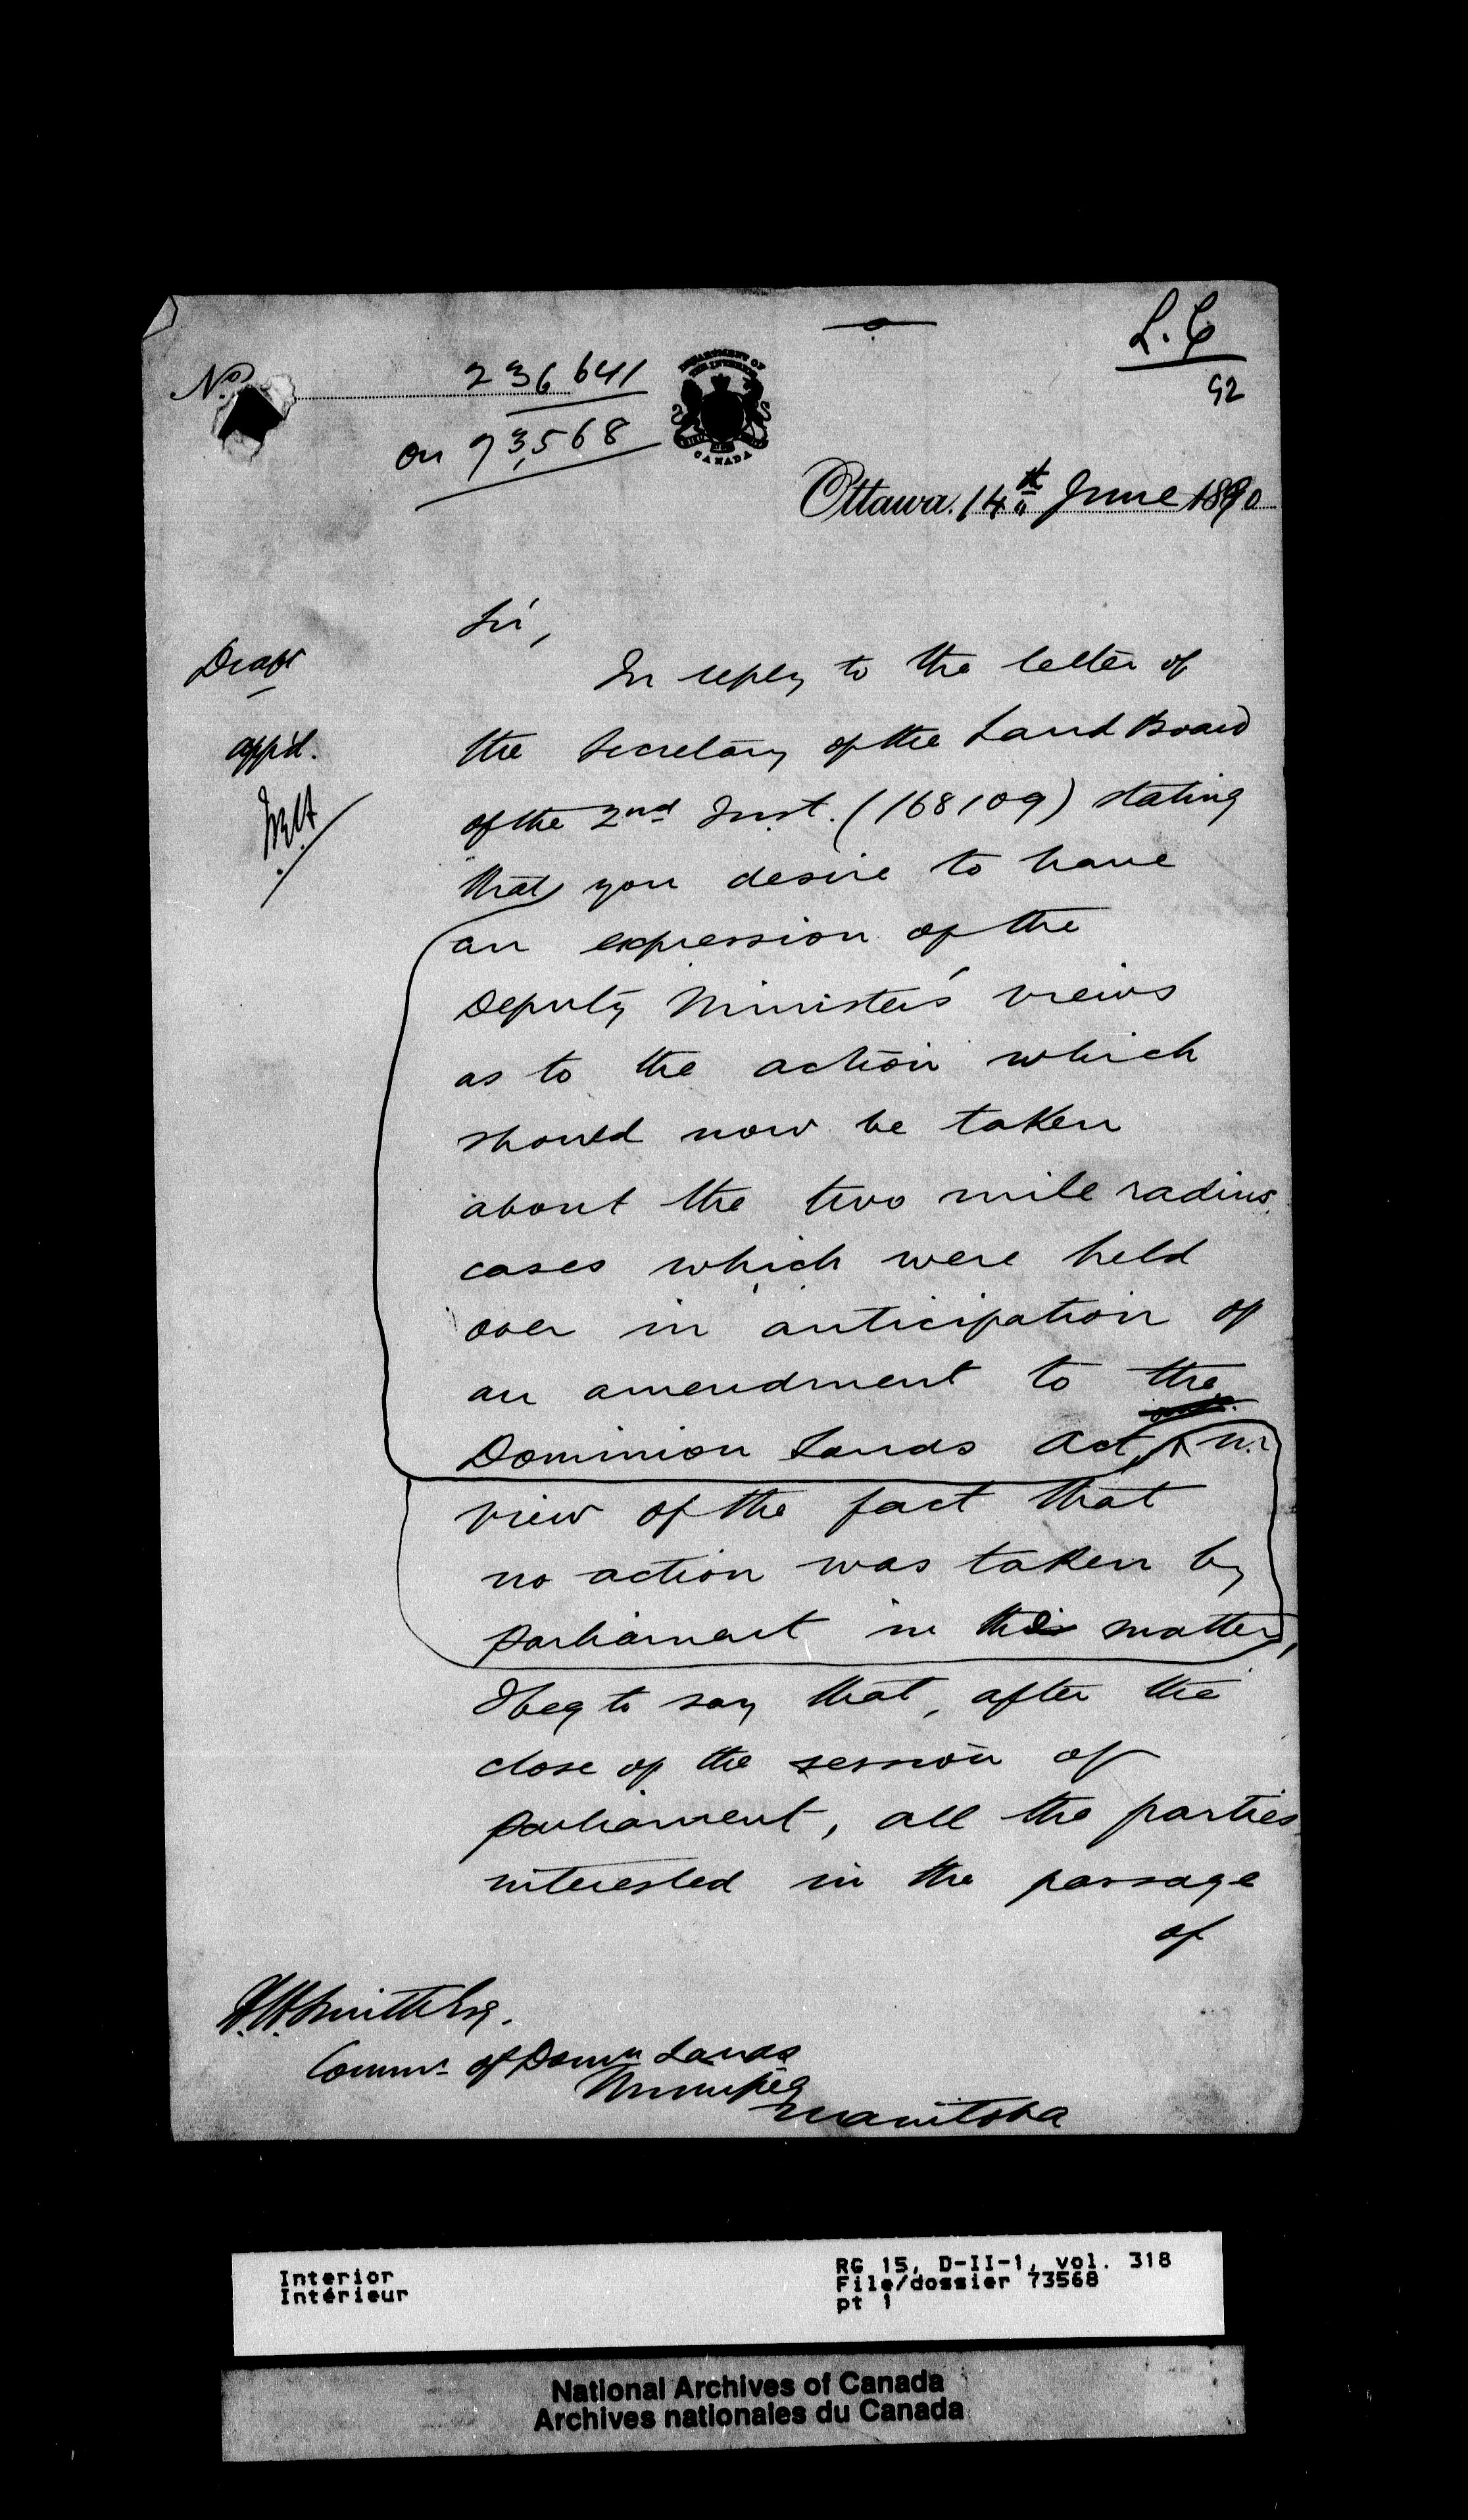 L.C
92
No. 236641
on 73,568
DEPARTMENT OF
THE INTERIOR
CANADA
Ottawa, 14th June 1890
Sir,
Draft
In reply to the letter of
app'd.
the Secretary of the Land Board
of the 2nd Inst. (168109) stating
that you desire to have
an expression of the
Deputy Minister's views
as to the action which
should now be taken
about the two mile radius
cases which were held
over in anticipation of
an amendment to the
Dominion Lands Act, in
view of the fact that
no action was taken by
Parliament in this matter,
I beg to say that, after the
close of the session of
Parliament, all the parties
interested in the passage
of
H.H. Smith Esq.
Commr. of Domn Lands
Winnipeg
Manitoba
Interior
Intérieur
RG 15, D-II-1, vol. 318
File/dossier 73568
pt 1
National Archives of Canada
Archives nationales du Canada